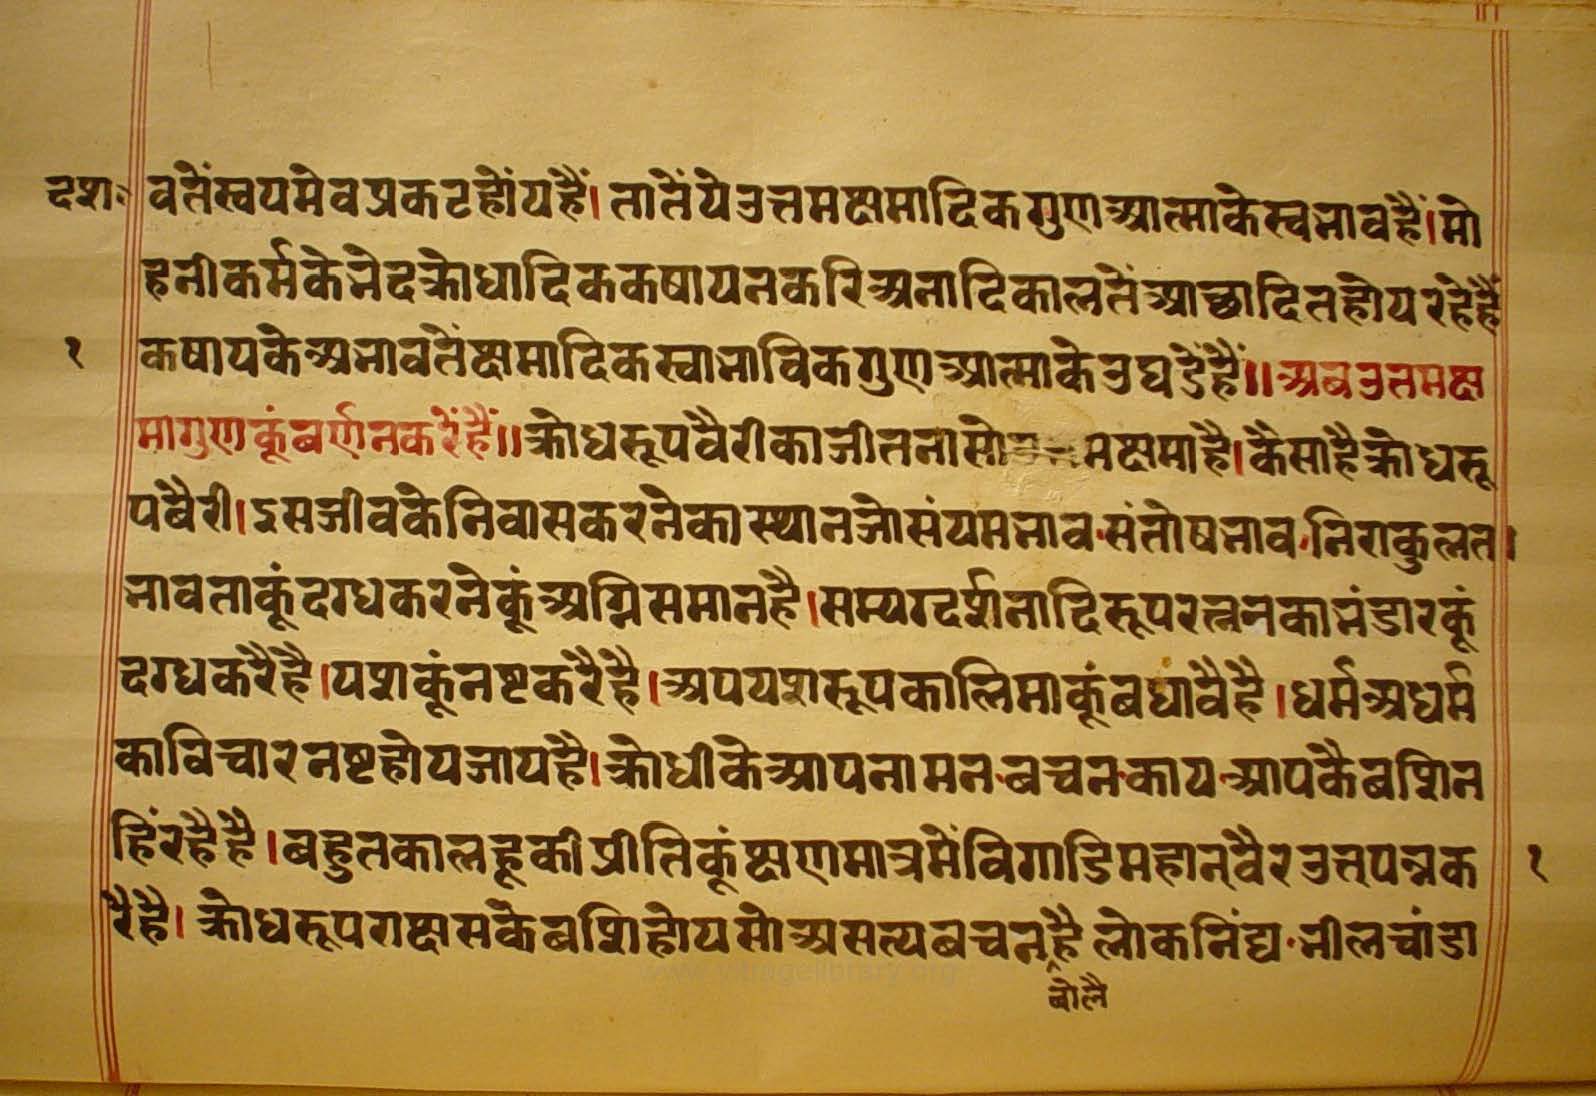 दश॰ वतैंस्वयमेवप्रकटहोंयहैं।तातैंयेउत्तमक्षमादिकगुणआत्माकेस्वभावहैं।मो
हनीकर्मकेभेदक्रोधादिककषायनकरिअनादिकालतैंआच्छादितहोयरहेहैं
१ कषायकेअभावतैंक्षमादिकस्वाभाविकगुणआत्माकेउघडेंहैं॥अबउत्तमक्ष
मागुणकूंबर्णनकरेंहैं॥क्रोधरूपवैरीकाजीतनासो मक्षमाहै।कैसाहैक्रोधरू
पबैरी।इसजीवकेनिवासकरनेकास्थानजोसंयमभाव·संतोषभाव·निराकुलत।
भावताकूंदग्धकरनेकूंअग्निसमानहै।सम्यग्दर्शनादिरूपरत्ननकाभंडारकूं
दग्धकरैहै।यशकूंनष्टकरैहै।अपयशरूपकालिमाकूंबधावैहै।धर्मअधर्म
काविचारनष्टहोयजायहै।क्रोधीकेआपनामन·बचन·काय·आपकैबशिन
हिंरहैहै।बहुतकालहूकीप्रीतिकूंक्षणमात्रमेंविगाडिमहान्वैरउत्पन्नक १
रैहै।क्रोधरूपराक्षसकेबशिहोयसोअसत्यबचनहैलोकनिंद्य·भीलचांडा
बोलै
www.vitragelibrary.org